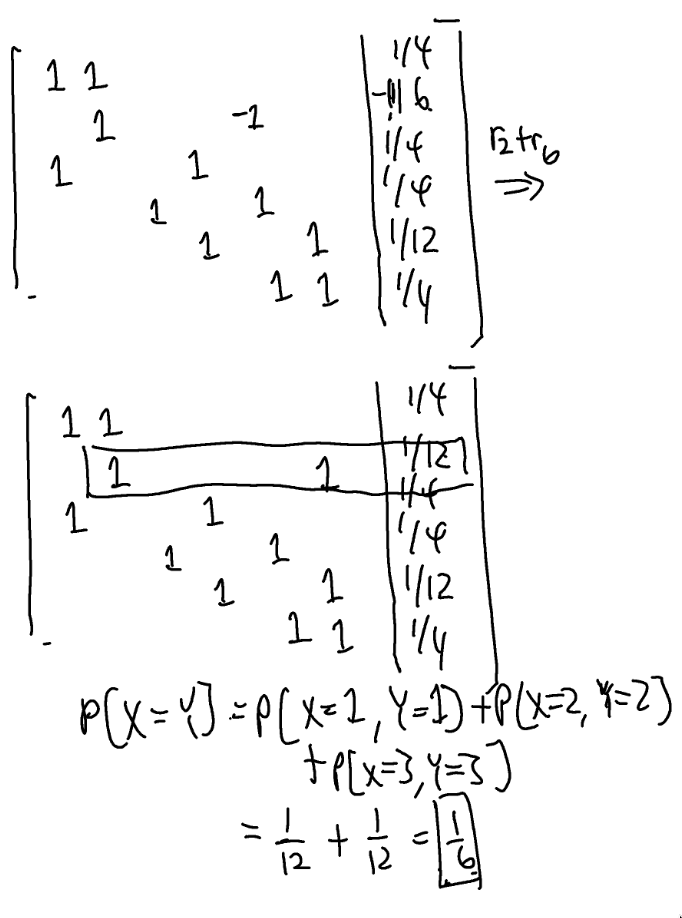 1 1 1/4
1 -1 -1/6
1 1 1/4 r₂+r₆
1 1 1/4 ⇒
1 1 1/12
1 1 1/4
1 1 1/4
1 1 1/12
1 1 1/4
1 1 1/4
1 1 1/12
1 1 1/4
P(X=Y) = P(X=1, Y=1) + P(X=2, Y=2)
+ P(X=3, Y=3)
= 1/12 + 1/12 = 1/6